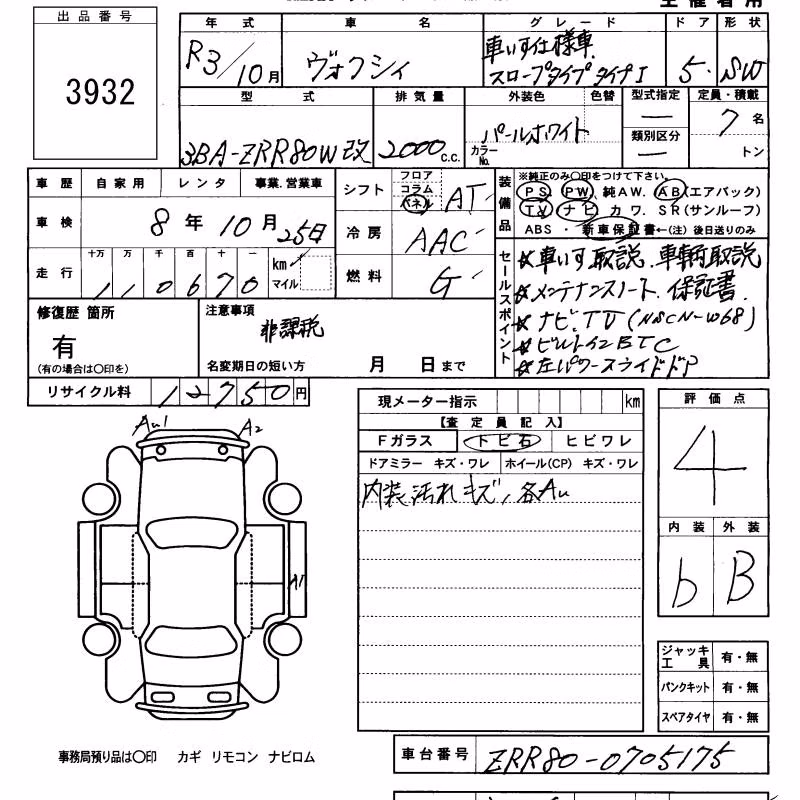 出品番号
3932
年式 車名 グレード ドア 形状
R3/10月 ヴォクシィ 車いす仕様車 スロープタイプ タイプI 5 SW
型式 排気量 外装色 色替 型式指定 定員・積載
3BA-ZRR80W改 2000c.c. パールホワイト カラーNo. ー 類別区分 ー 7名 トン
車歴 自家用 レンタ 事業.営業車
車検 8年10月25日
走行 十万 万 千 百 十 一
110670 km マイル
シフト フロア コラム パネル AT
冷房 AAC
燃料 G
装備品
※純正のみ〇印をつけて下さい。
PS PW 純AW. AB(エアバック)
TV ナビ カワ. SR(サンルーフ)
ABS ・ 新車保証書←(注) 後日送りのみ
セールスポイント
☆車いす取説.車輌取説
☆メンテナンスノート.保証書.
☆ナビ.TV(NSCN-W68)
☆ビルトインETC
☆左パワースライドドア
修復歴 箇所
有
(有の場合は〇印を)
注意事項
非課税
名変期日の短い方 月 日まで
リサイクル料 12750円
Au1 A2
A1
現メーター指示 km
【査定員記入】
Fガラス トビ石 ヒビワレ
ドアミラー キズ・ワレ ホイール(CP) キズ・ワレ
内装汚れキズ、各Au
評価点
4
内装 外装
b B
ジャッキ工具 有・無
パンクキット 有・無
スペアタイヤ 有・無
事務局預り品は〇印 カギ リモコン ナビロム
車台番号 ZRR80-0705175